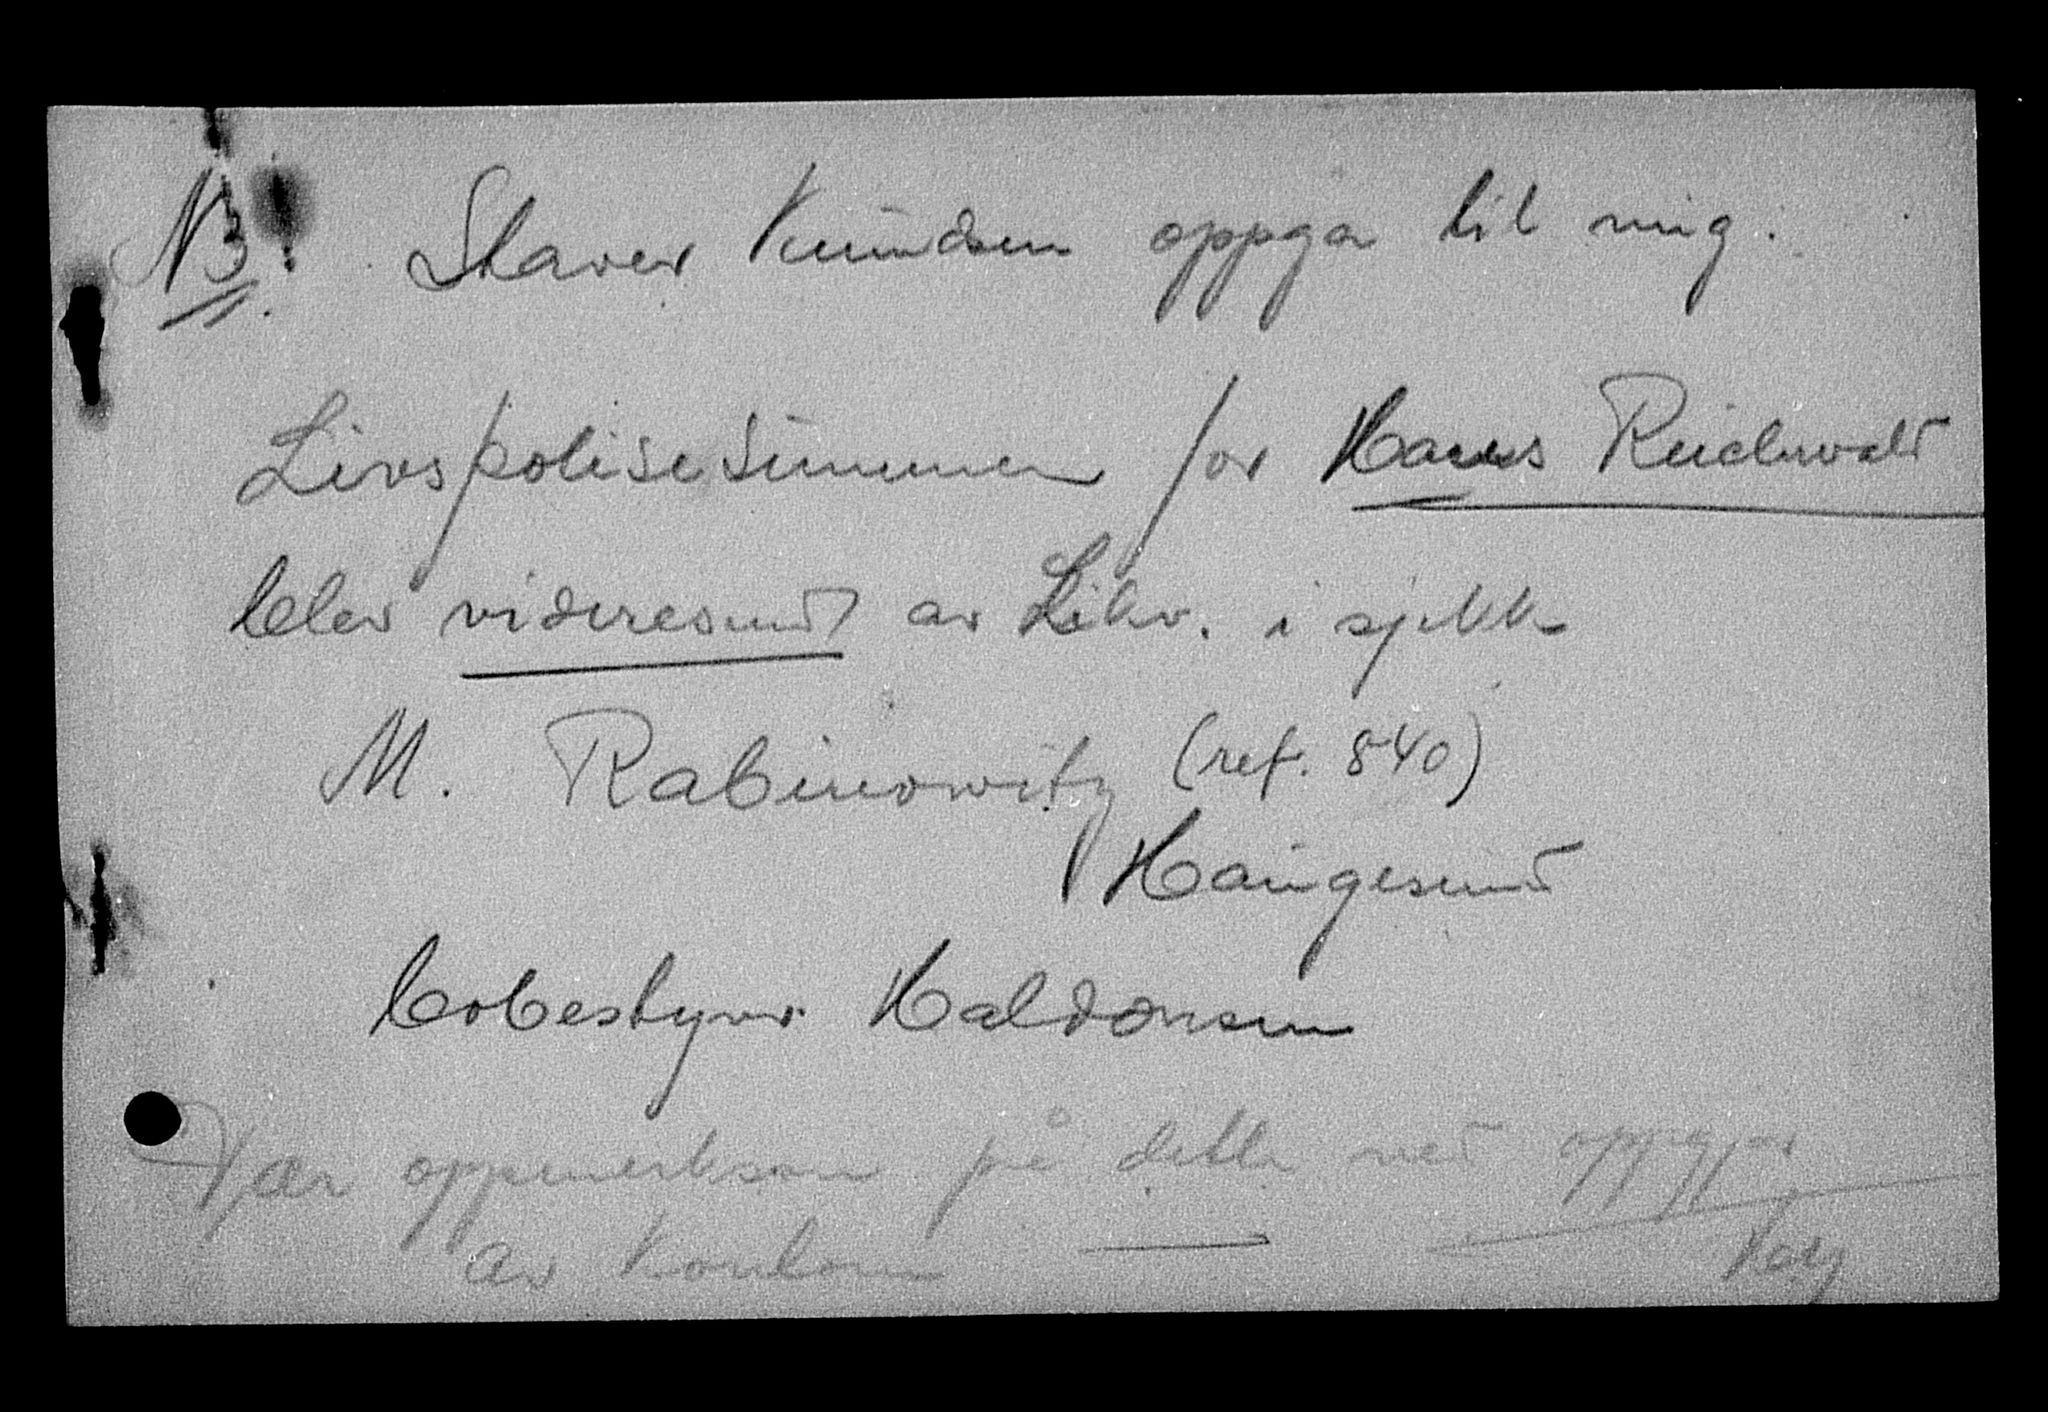 NB! Staver Knudsen oppga til mig.
Livspolisesummen for Hans Reichwald
blev videresendt av Likv. i sjekk
M. Rabinowitz (ref. 840)
Haugesund
bobestyrer Haldorsen
Vær oppmerksom på dette ved oppgjør
av kontoen